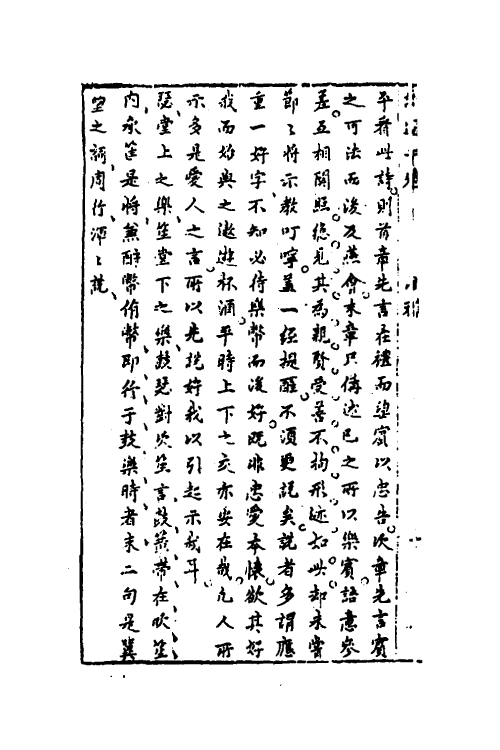 平看此詩則首章先言在禮而望賓以忠告次章先言賓
之可法而後及燕會末章只備述己之所以樂賓語意參
差互相關照總見其為親賢愛善不拘形迹如此却未嘗
節〻將示教叮嚀蓋一經提醒不須更說矣說者多謂應
重一好字不知必待樂幣而後好既非忠愛本懷欲其好
我而始與之遨遊杯酒平時上下之交亦安在哉凡人所
示多是愛人之言所以先提好我以引起示我耳
琴堂上之樂笙堂下之樂鼓琴對吹笙言鼓簧帶在吹笙
內承筐是將無酬幣侑幣即行于鼓樂時者末二句是冀
望之詞周行渾〻說
小雅